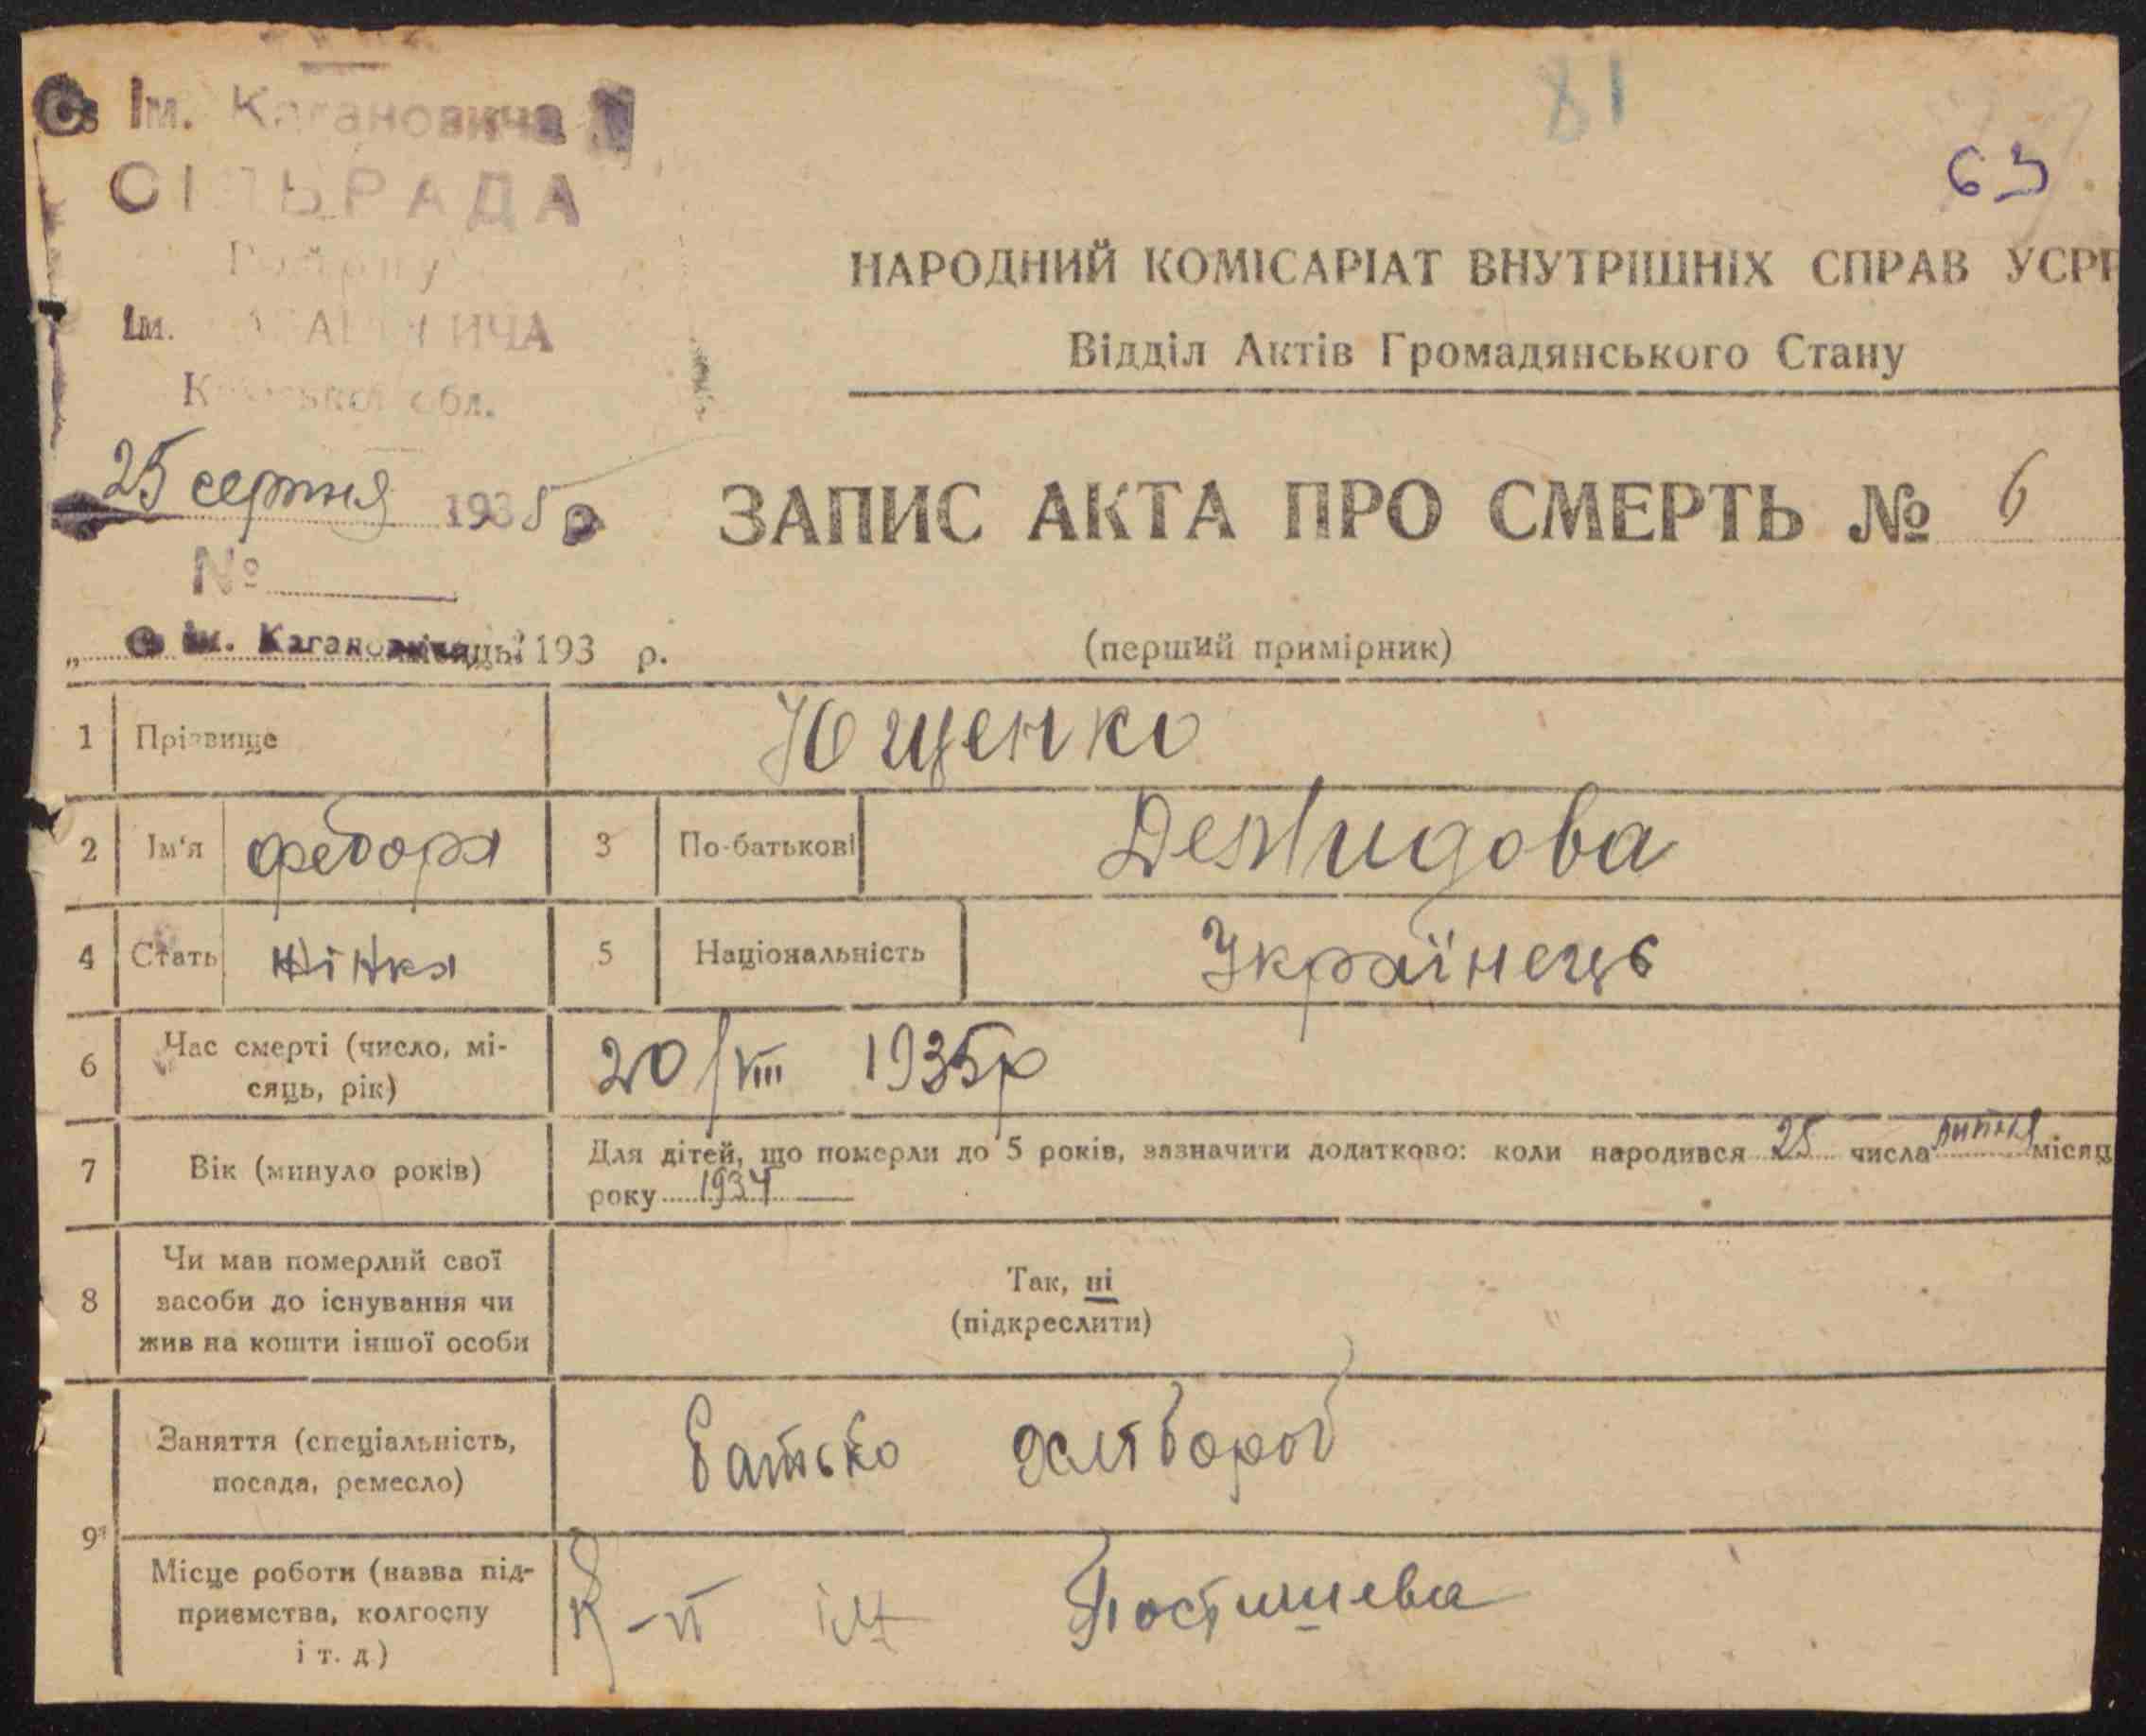 81
63
Сs Ім. Кагановича
СІЛЬРАДА
Району
Ім. КАГАНОВИЧА
обл.
25 серпня 1935 р
№
НАРОДНИЙ КОМІСАРІАТ ВНУТРІШНІХ СПРАВ УСРР
Відділ Актів Громадянського Стану
ЗАПИС АКТА ПРО СМЕРТЬ № 6
„ с ім. Кагановича 193 р.
(перший примірник)
1 Прізвище Ющенко
2 Ім'я федора 3 По-батькові Демидова
4 Стать жінка 5 Національність Українець
6 Час смерті (число, мі-
сяць, рік) 20/VIII 1935р
7 Вік (минуло років) Для дітей, що померли до 5 років, зазначити додатково: коли народився 25 числа липня місяц
року 1934
8 Чи мав померлий свої
засоби до існування чи
жив на кошти іншої особи
Так, ні
(підкреслити)
9 Заняття (спеціальність,
посада, ремесло) батько
Місце роботи (назва під-
приємства, колгоспу
і т. д) К-п ім Постишева